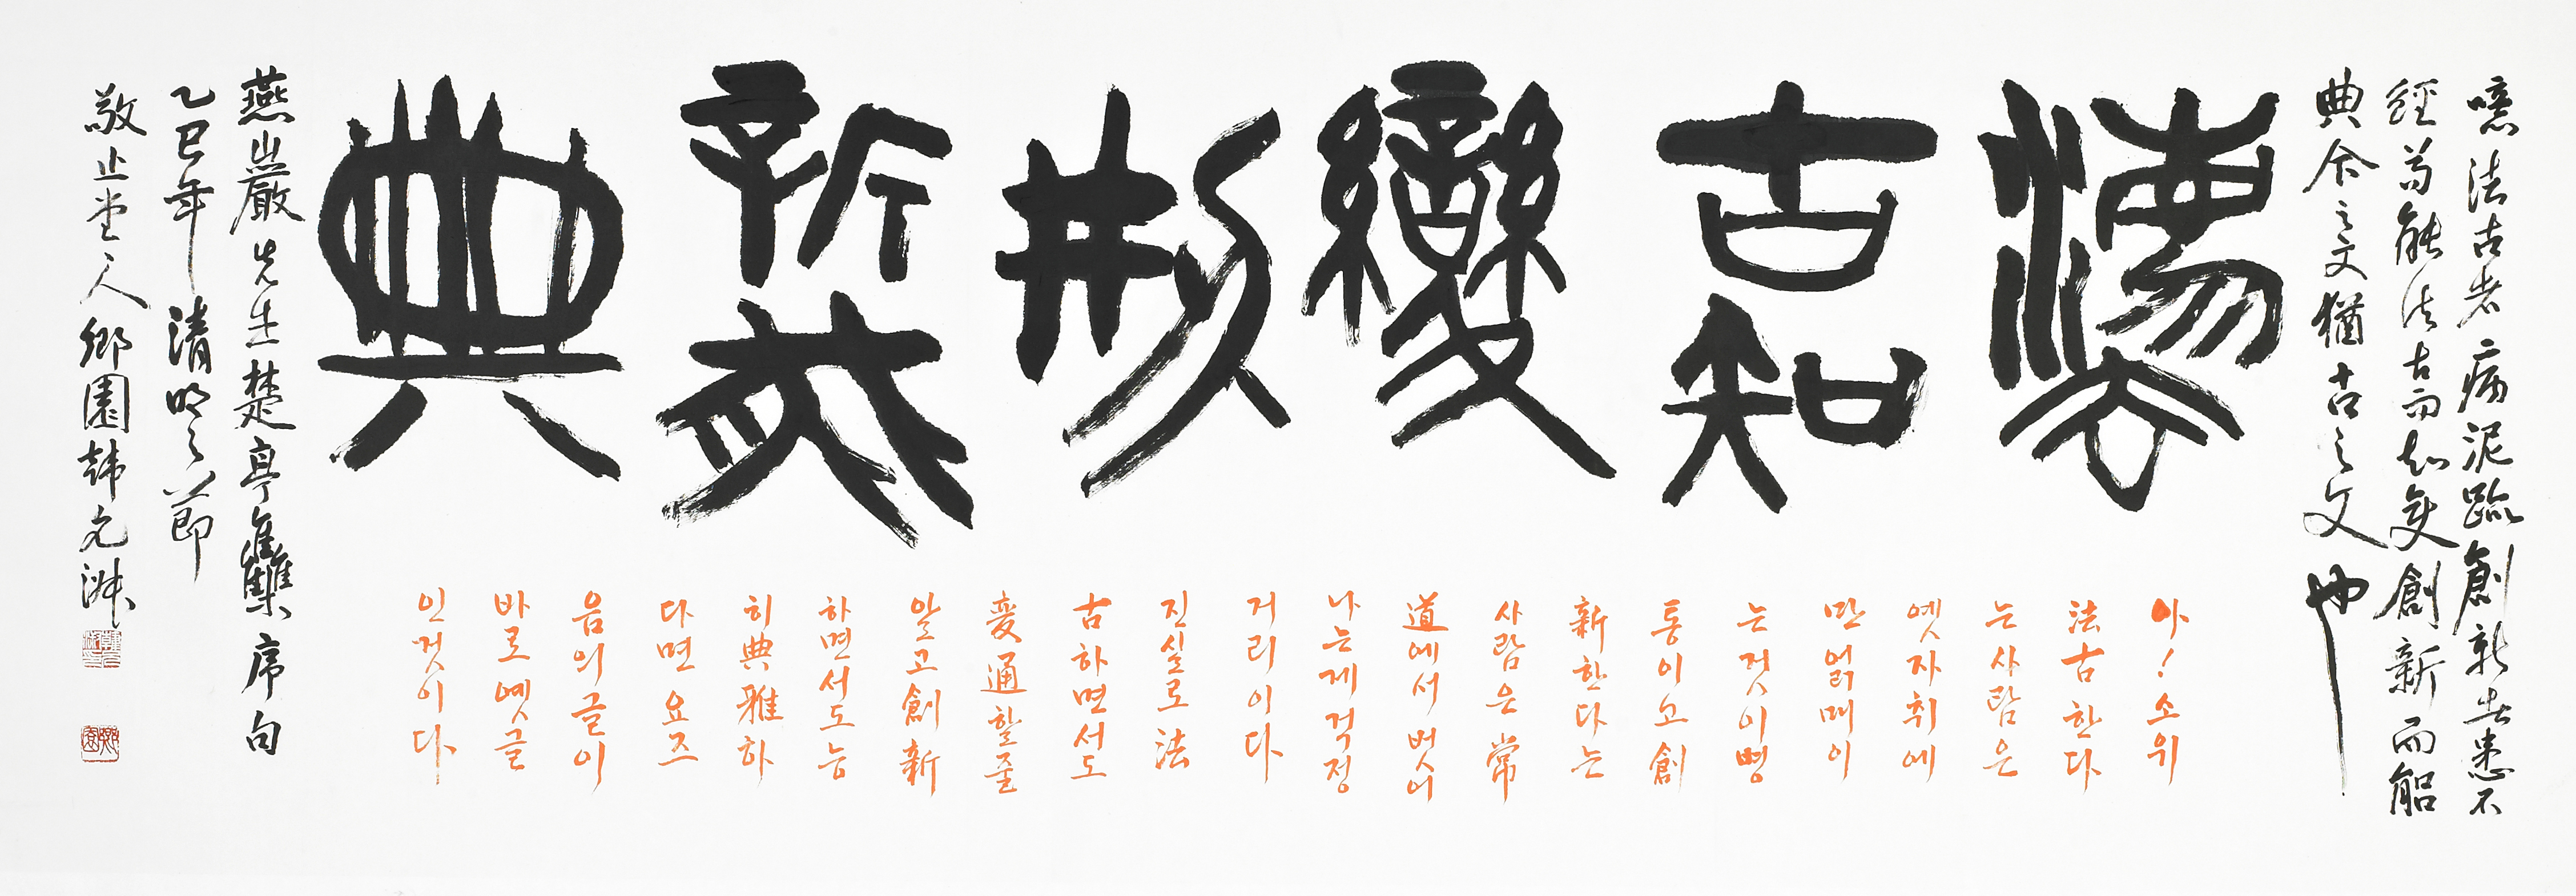 噫法古者病泥跡創新者患不
經苟能法古而知変創新而能
典今之文猶古之文也
灋
古知
變
刱
新能
典
아!소위
法古한다
는사람은
옛자취에
만얽매이
는것이병
통이고創
新한다는
사람은常
道에서벗어
나는게걱정
거리이다
진실로法
古하면서도
変通할줄
알고創新
하면서도능
히典雅하
다면요즈
음의글이
바로옛글
인것이다
燕巖先生楚亭雧序句
乙巳年清明之節
敬止堂人鄉園韓元